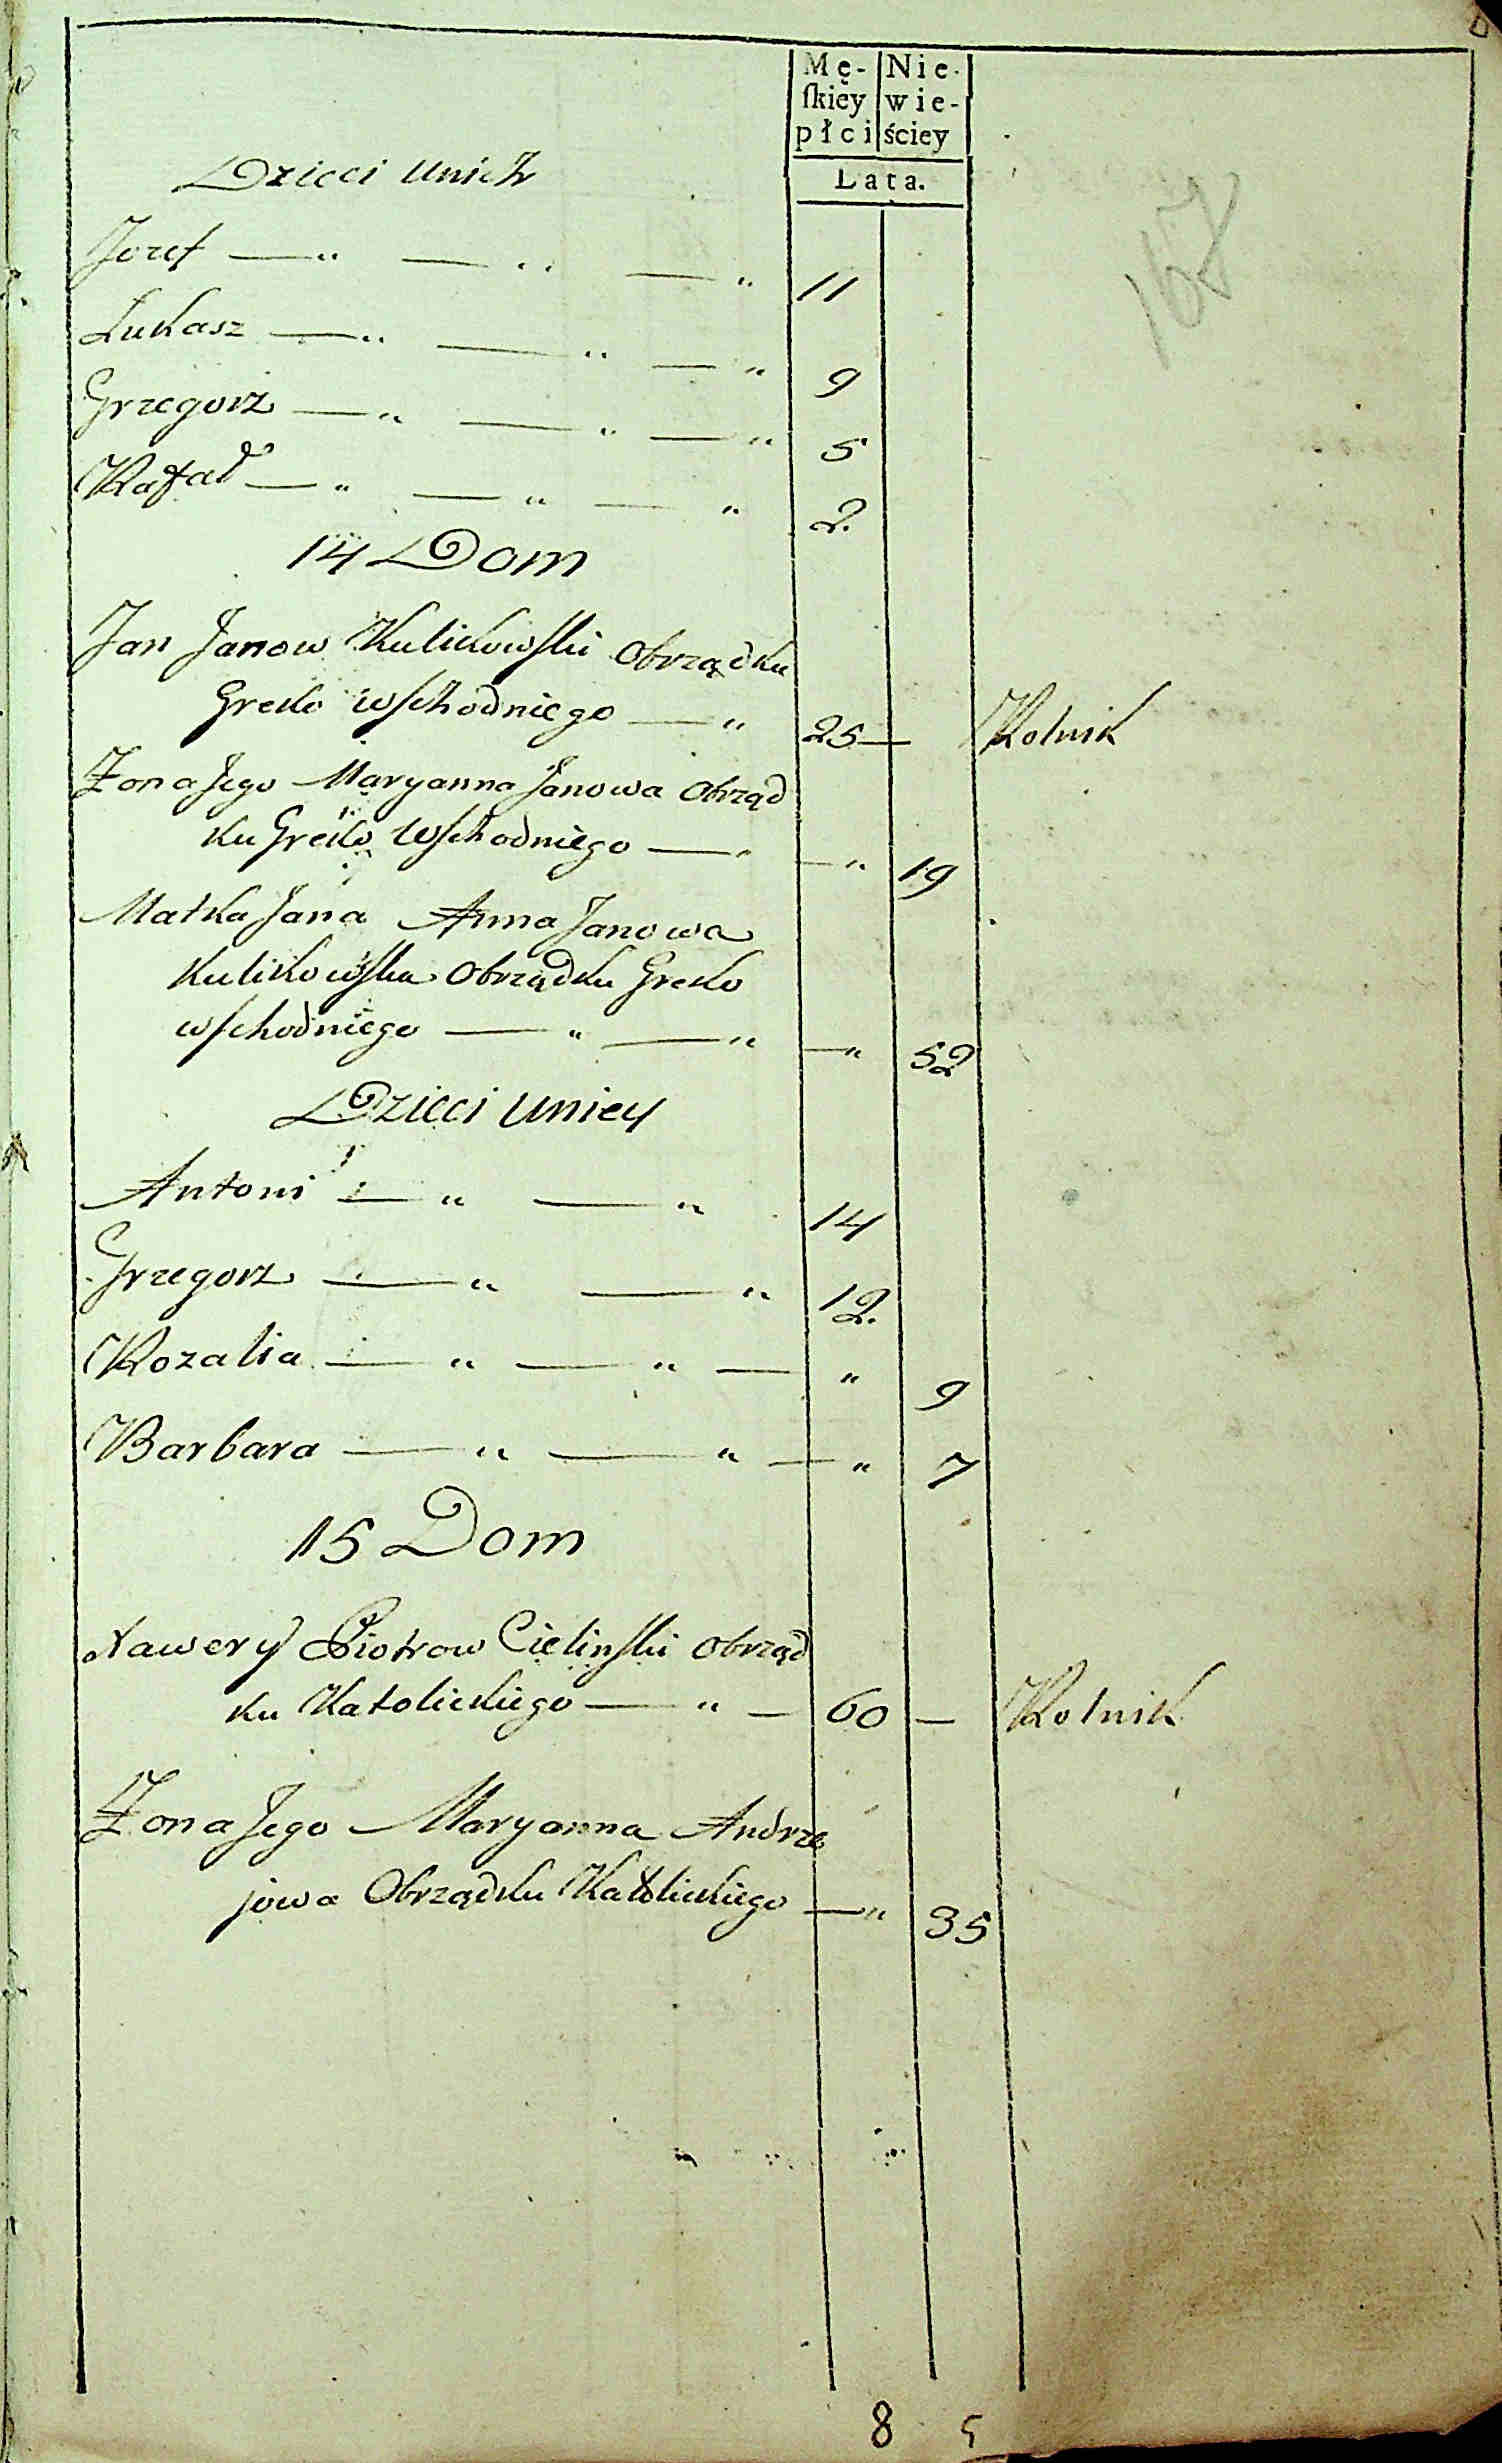 Mę- Nie-
ſkiey wie-
płci ściey
Lata.
Dzieci Unich
Jozef — „ — „ — „ 11
Łukasz — „ — „ — „ 9
Grzegorz — „ — „ — „ 5
Rafał — „ — „ — „ 2.
14 Dom
Jan Janow Kulikowſki Obrządku
Greko wſchodniego — „ 25 — Rolnik
Żona Jego Maryanna Janowa Obrząd
ku Greko Wſchodniego — „ — „ 19
Matka Jana Anna Janowa
Kulikowſka Obrządku Greko
wſchodniego — „ — „ — „ 52
Dzieci Uniey
Antoni — „ — „ 14
Grzegorz — „ — „ 12.
Rozalia — „ — „ — „ 9
Barbara — „ — „ — „ 7
15 Dom
Xawery Piotrow Cielinſki Obrząd
ku Katolickiego — „ — 60 — Rolnik
Żona Jego Maryanna Andrze
jowa Obrządku Katolickiego — „ 35
8 5